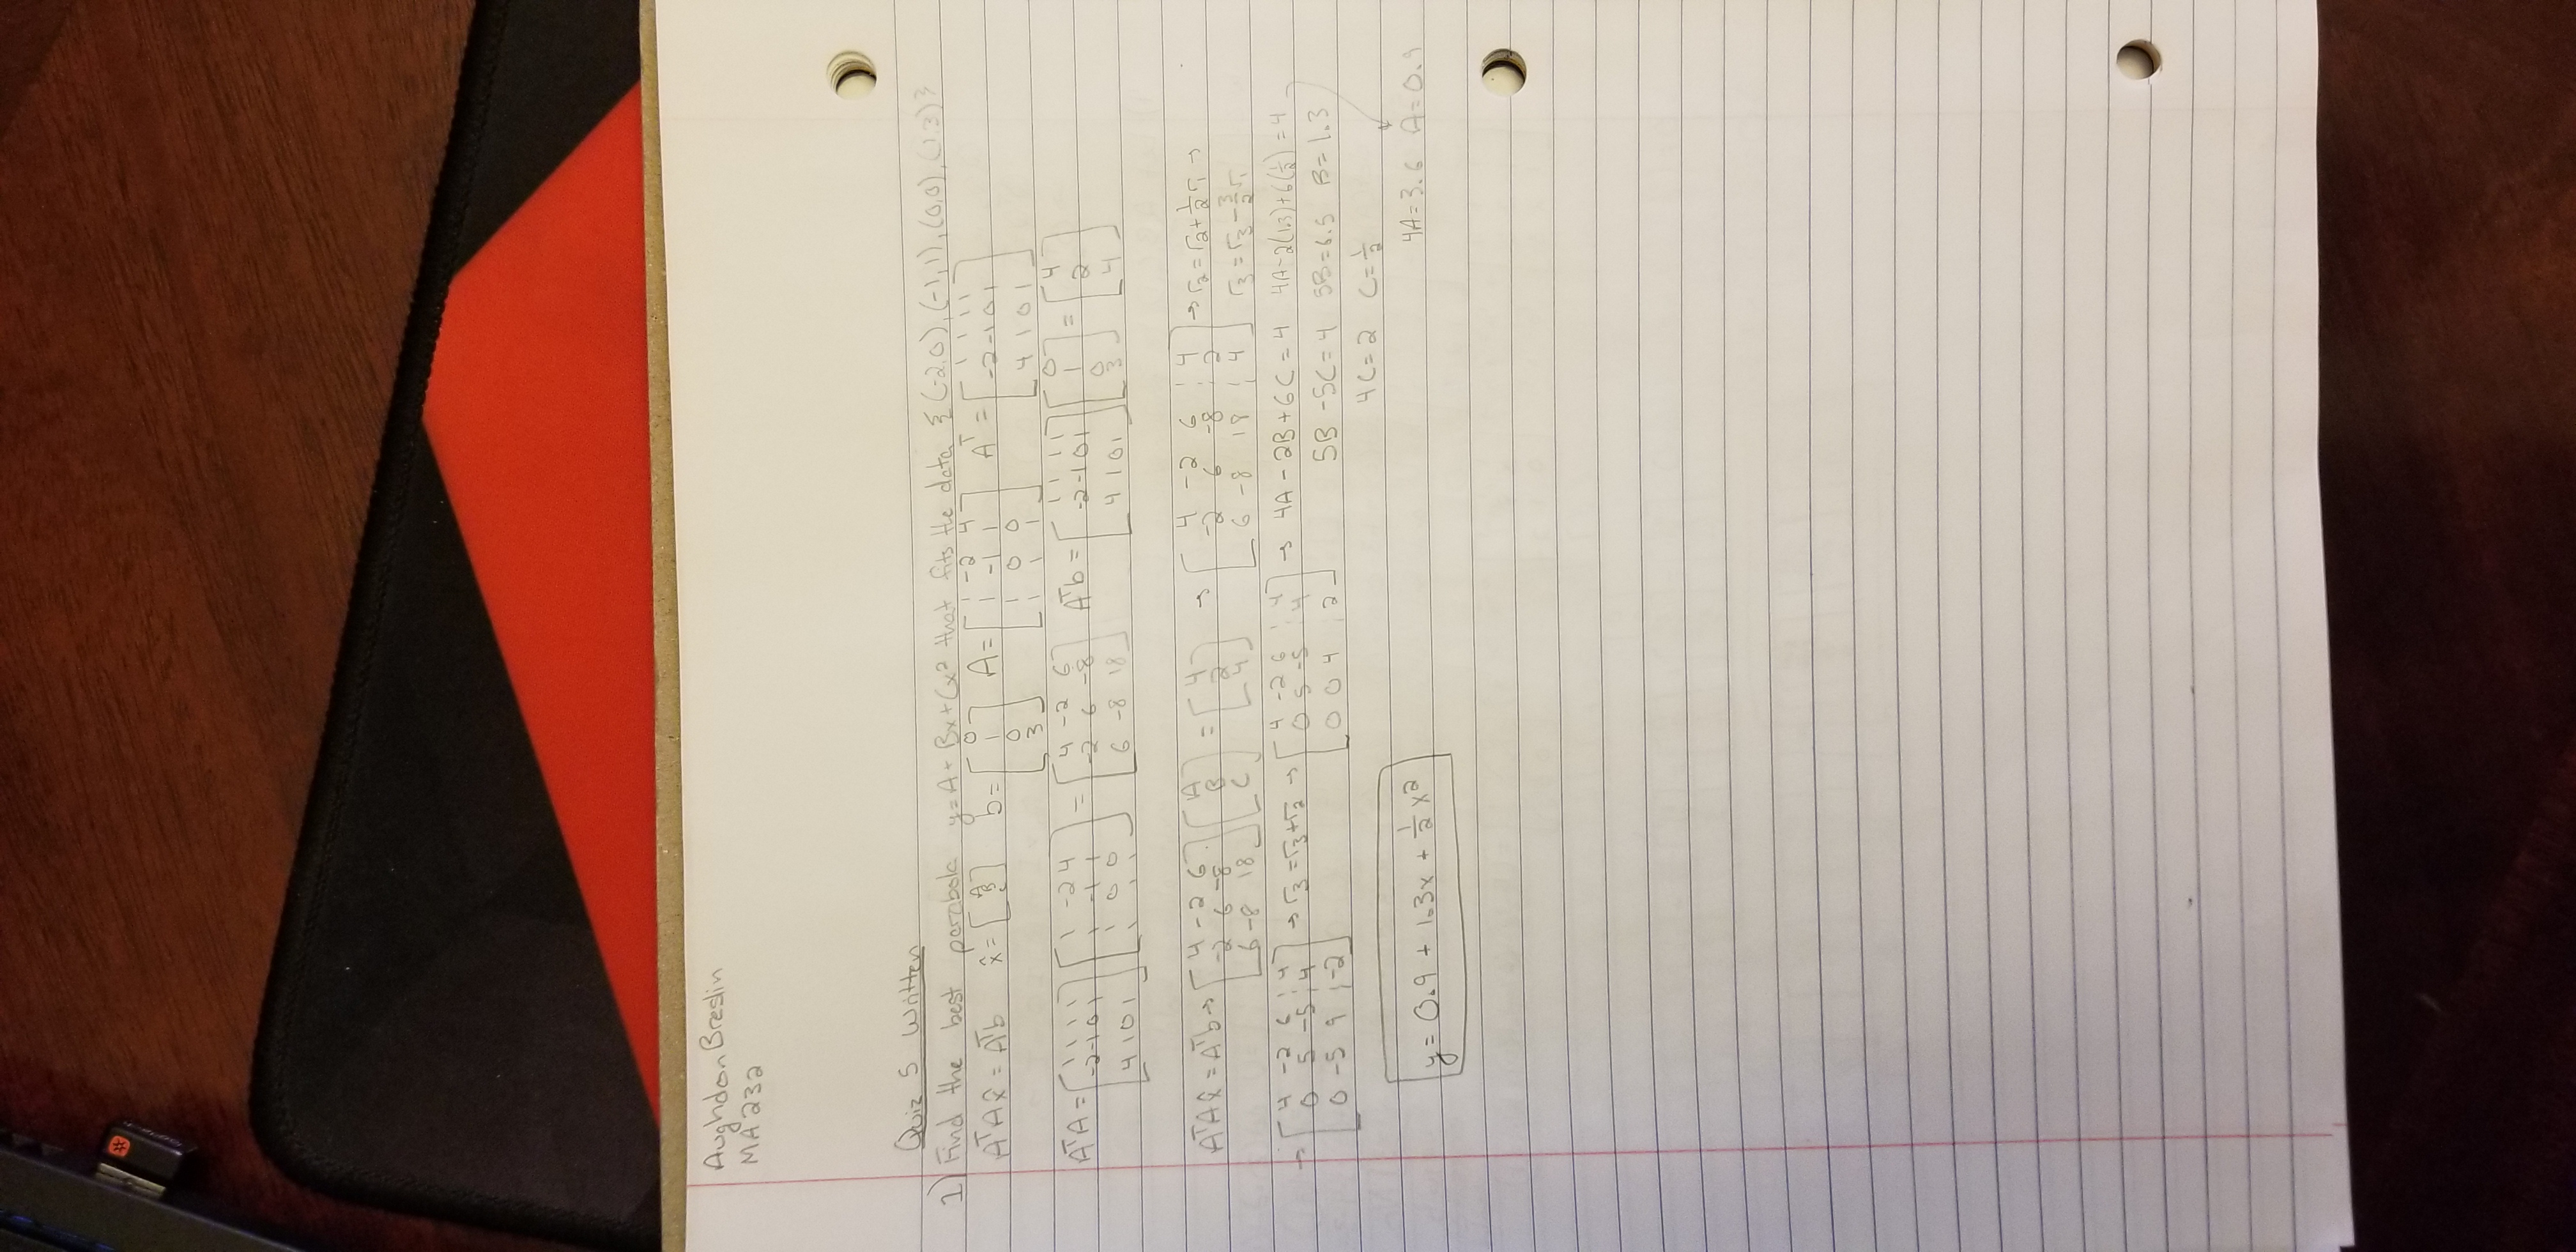 Aughdon Breslin
MA 232
Quiz 5 Written
1) Find the best parabola y=A+Bx+Cx² that fits the data {(-2,0),(-1,1),(0,0),(1,3)}
AᵀAx̂ = Aᵀb x̂ = [A; B; C] b = [0; 1; 0; 3] A = [1 -2 4; 1 -1 1; 1 0 0; 1 1 1] Aᵀ = [1 1 1 1; -2 -1 0 1; 4 1 0 1]
AᵀA = [1 1 1 1; -2 -1 0 1; 4 1 0 1] [1 -2 4; 1 -1 1; 1 0 0; 1 1 1] = [4 -2 6; -2 6 -8; 6 -8 18] Aᵀb = [1 1 1 1; -2 -1 0 1; 4 1 0 1] [0; 1; 0; 3] = [4; 2; 4]
AᵀAx̂ = Aᵀb → [4 -2 6; -2 6 -8; 6 -8 18] [A; B; C] = [4; 2; 4] → [4 -2 6 | 4; -2 6 -8 | 2; 6 -8 18 | 4] → r₂ = r₂ + ½r₁ →
r₃ = r₃ - 3/2 r₁
→ [4 -2 6 | 4; 0 5 -5 | 4; 0 -5 9 | -2] → r₃ = r₃ + r₂ → [4 -2 6 | 4; 0 5 -5 | 4; 0 0 4 | 2] → 4A - 2B + 6C = 4 4A - 2(1.3) + 6(½) = 4
5B - 5C = 4 5B = 6.5 B = 1.3
4C = 2 C = ½
4A = 3.6 A = 0.9
y = 0.9 + 1.3x + ½x²